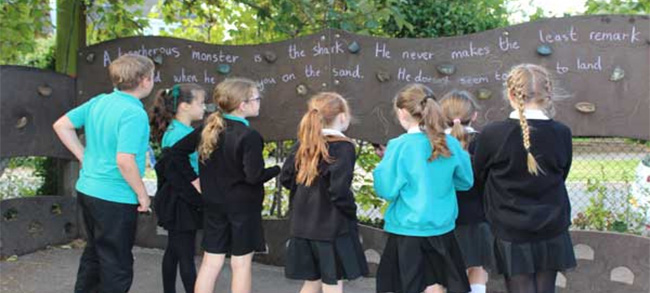 A treacherous monster is the shark He never makes the least remark
when he you on the sand. He seem to to land